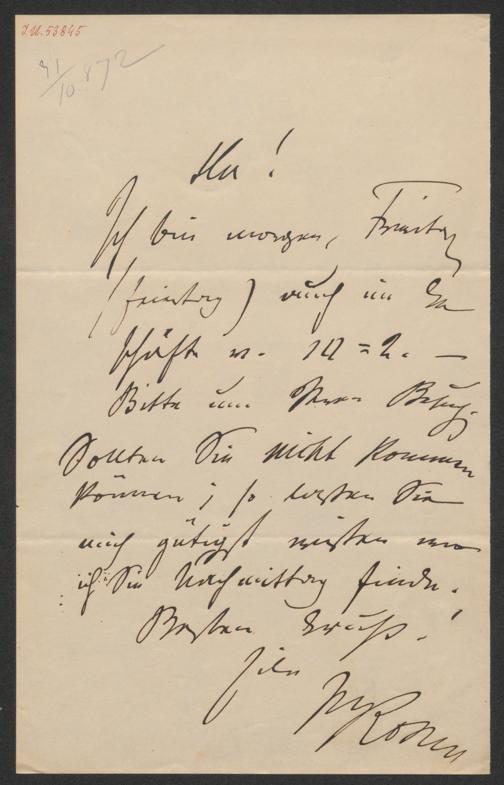 I.N. 53845
31/10 872
Ich bin morgen, Freitag
(Feiertag) auch im Ge
schäfte v. 10 = 2. —
Bitte um Ihren Besuch.
Sollten Sie nicht kommen
können; so lassen Sie
mich gütigst wissen wo
ich Sie Nachmittag finde.
Besten Gruß!